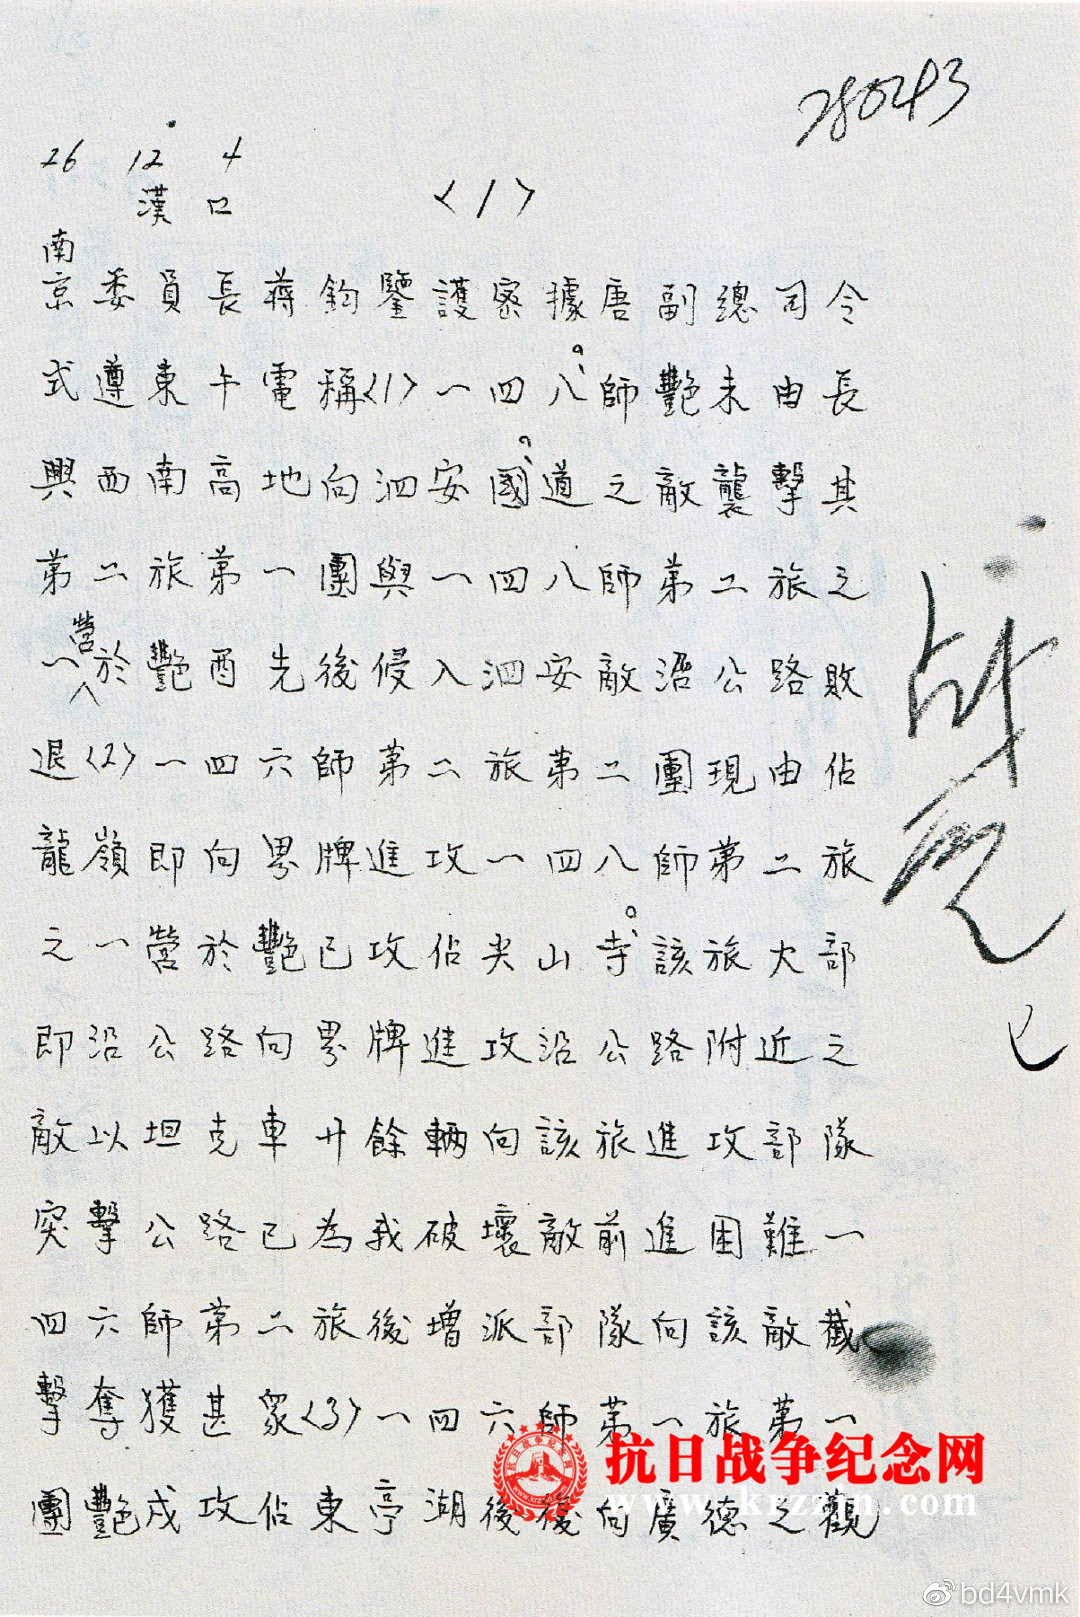 28043
26 12 4
漢口 〈1〉
南京委員長蔣鈞鑒護密據唐副總司令
式遵東午電稱〈1〉一四八師艷未由長
興西南高地向泗安國道之敵襲擊其
第二旅第一團與一四八師第二旅之
一營於艷酉先後侵入泗安敵沿公路敗
退〈2〉一四六師第二旅第二團現由佔
龍嶺即向界牌進攻一四八師第二旅
之一營於艷已攻佔尖山寺該旅大部
即沿公路向界牌進攻沿公路附近之
敵以坦克車廿餘輛向該旅進攻部隊
突擊公路已為我破壞敵前進困難一
四六師第二旅後增派部隊向該敵截
擊奪獲甚眾〈3〉一四六師第一旅第一
團艷戌攻佔東亭湖後後向廣德之觀
抗日战争纪念网
www.krzzjn.com
bd4vmk